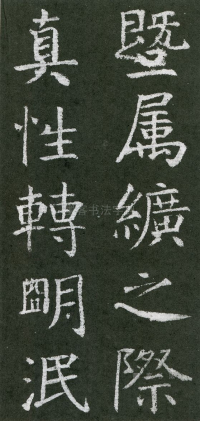 暨属纊之際
真性轉明泯